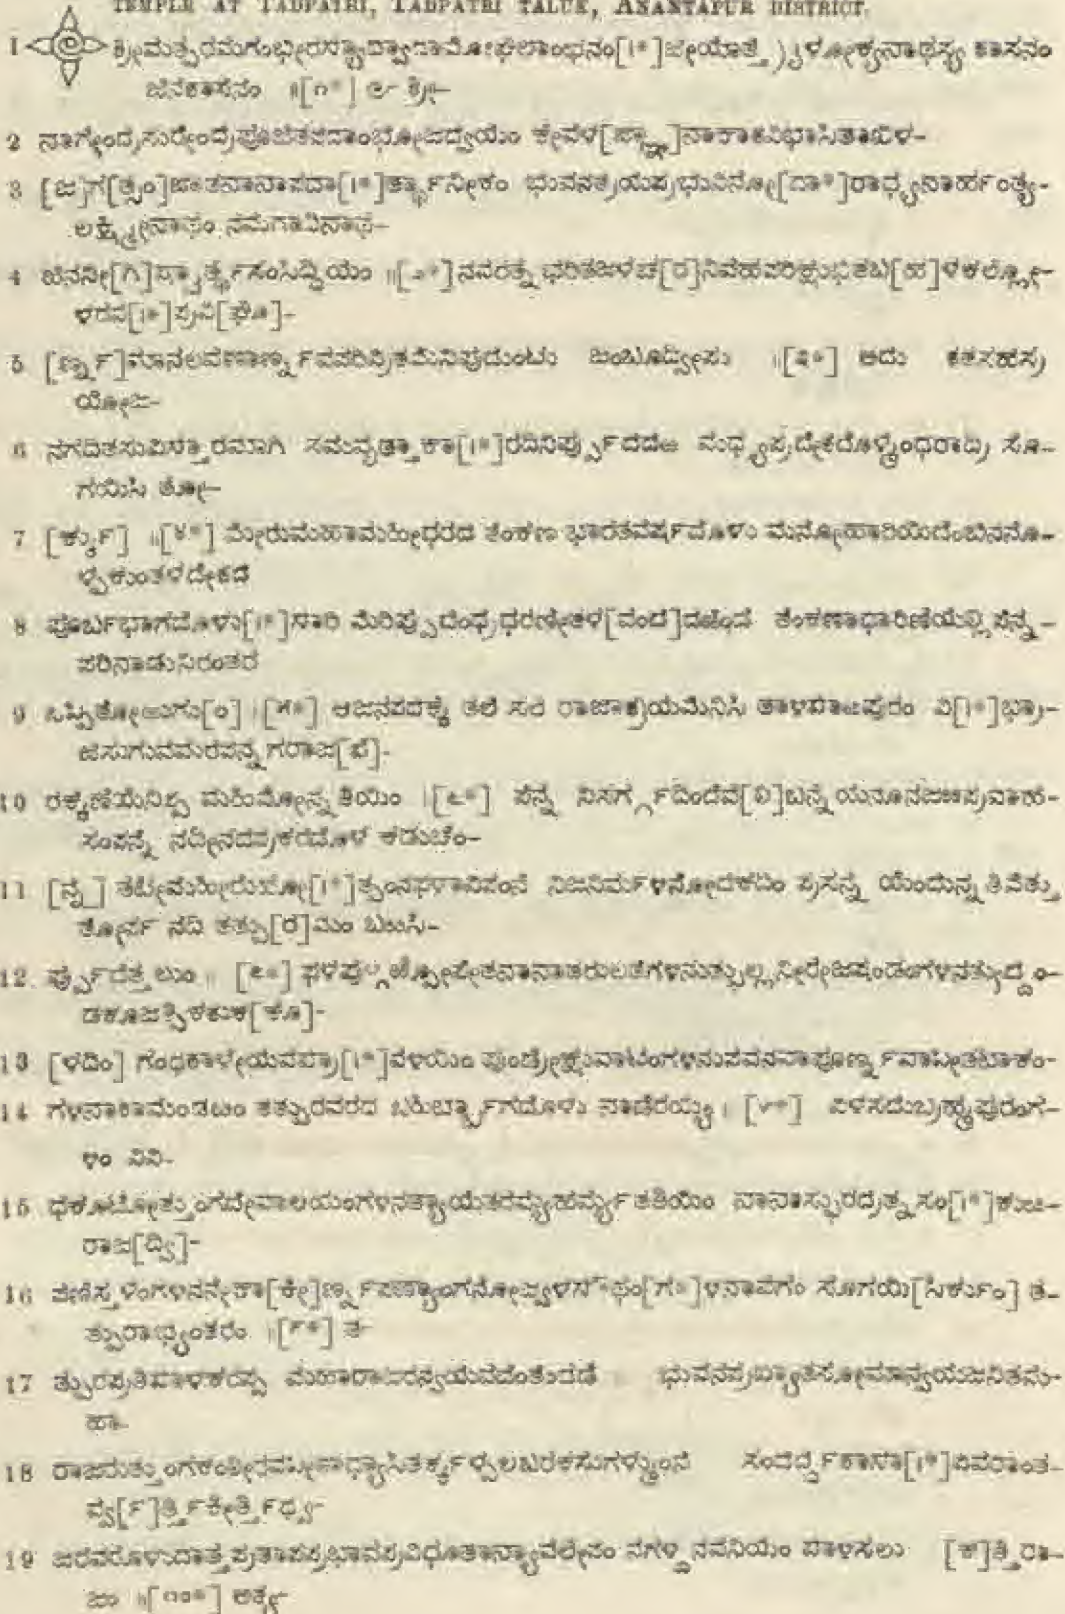 TEMPLE AT TADPATRI, TADPATRI TALUK, ANANTAPUR DISTRICT.
1 ಶ್ರೀಮತ್ಪರಮಗಂಭೀರಸ್ಯಾದ್ವಾದಾಮೋಘಲಾಂಛನಂ[।*]ಜೀಯಾತ್ತ್ರೈಳೋಕ್ಯನಾಥಸ್ಯ ಶಾಸನಂ
ಜಿನಶಾಸನಂ ॥[೧*] ಶ್ರೀ-
2 ನಾಗೇಂದ್ರಸುರೇಂದ್ರಪೂಜಿತಪದಾಂಭೋಜದ್ವಯಂ ಕೇವಳ[ಜ್ಞಾ]ನಾಕಾಶವಿಭಾಸಿತಾಖಿಳ-
3 [ಜ]ಗ[ತ್ಸಂ]ಜಾತನಾನಾಪದಾ[।*]ರ್ತ್ಥಾನೀಕಂ ಭುವನತ್ರಯಪ್ರಭುವಿನೋ[ದಾ*]ರಾಧ್ಯನಾರ್ಹಂತ್ಯ-
ಲಕ್ಷ್ಮೀನಾಥಂ ನಮಗಾದಿನಾಥ-
4 ಜಿನನೀ[ಗಿ]ಷ್ಟಾರ್ತ್ಥಸಂಸಿದ್ಧಿಯಂ ॥[೨*] ನವರತ್ನಭರಿತಜಳಚ[ರ]ನಿವಹಪರಿಕ್ಷುಭಿತಬ[ಹ]ಳಕಲ್ಲೋ-
ಳರವ[।*]ಪ್ರವಿ[ಘೂ]-
5 [ರ್ಣ್ನ]ಮಾನಲವಣಾರ್ಣ್ನವಪರಿವ್ರಿತಮೆನಿಪುದುಂಟು ಜಂಬೂದ್ವೀಪು ॥[೩*] ಅದು ಶತಸಹಸ್ರ
ಯೋಜ-
6 ನಗದಿತಸುವಿಸ್ತಾರಮಾಗಿ ಸಮವೃತ್ತಾಕಾ[।*]ರದಿನಿರ್ಪ್ಪುದದಱ ಮಧ್ಯಪ್ರದೇಶದೊಳ್ಮಂಧರಾದ್ರಿ ಸೊ-
ಗಯಿಸಿ ತೋ-
7 [ರ್ಕ್ಕು] ॥[೪*] ಮೇರುಮಹಾಮಹೀಧರದ ತೆಂಕಣ ಭಾರತವರ್ಷದೊಳು ಮನೋಹಾರಿಯಿದೆಂಬಿನನೊ-
ಳ್ಪಕುಂತಳದೇಶದ
8 ಪೂರ್ಬಭಾಗದೊಳು[।*]ಸಾರಿ ಮೆರಿಪ್ಪುದಂಧ್ರಧರಣೀತಳ[ವಂದ]ದಱಿಂದೆ ತೆಂಕಣಾಧಾರಿಣಿಯಲ್ಲಿ ಪೆನ್ನ-
ಪರಿನಾಡುನಿರಂತರ
9 ಒಪ್ಪಿತೋಱುಗು[ಂ] ।[೫*] ಆಜನಪದಕ್ಕೆ ತಲೆ ಸಲೆ ರಾಜಾಶ್ರಯಮೆನಿಸಿ ತಾಳಪಾಱಪುರಂ ವಿ[।*]ಭ್ರಾ-
ಜಿಸುಗುವಮರಪನ್ನಗರಾಜ[ಪೆ]-
10 ರಕ್ಕಣಿಯೆನಿಪ್ಪ ಮಹಿಮೋನ್ನತಿಯಿಂ ।[೬*] ಪೆನ್ನೆ ನಿಸರ್ಗ್ಗದಿಂದೆವೆ[ಬ]ಬನ್ನೆಯನೂನಜಳಪ್ರವಾಹ-
ಸಂಪನ್ನೆ ನದೀನದಪ್ರಕರದೊಳ್ ಕಡುಚೆಂ-
11 [ನ್ನೆ] ತಟೀಮಹೀರುಹೋ[।*]ತ್ಪಂನಫಳಾವಿಪಂನೆ ನಿಜನಿರ್ಮಳನೋದಕದಿಂ ಪ್ರಸನ್ನೆ ಯೆಂದುನ್ನತಿವೆತ್ತು
ತೋರ್ಪ ನದಿ ತತ್ಪು[ರ]ಮಂ ಬಳಸಿ-
12 ರ್ಪ್ಪುದೆತ್ತಲುಂ ॥ [೭*] ಫಳಪುಲ್ಗಚ್ಛೋಪೇತನಾನಾತರುಲತೆಗಳನುತ್ಫುಲ್ಲನೀರೇಜಷಂಡಂಗಳನತ್ಯುದ್ದಂ-
ಡಕೂಜತ್ಪಿಕಶುಕ[ಕೂ]-
13 [ಳದಿಂ] ಗಂಧಶಾಳೇಯವಪ್ರಾ[।*]ವಳಿಯಿಂ ಪುಂಡ್ರೇಕ್ಷುವಾಟಂಗಳನುಪವನವಾಪೂರ್ಣ್ನವಾಪೀತಟಾಕಂ-
14 ಗಳನಾಕಾಮಂಡಟಂ ತತ್ಪುರವರದ ಬಹಿರ್ಬ್ಭಾಗದೊಳು ನಾಡೆರಯ್ಯಂ । [೮*] ವಿಳಸದುಬ್ರಹ್ಮಪುರಂಗ-
ಳಂ ವಿವಿ-
15 ಧಕೂಟೋತ್ತುಂಗದೇವಾಲಯಂಗಳನತ್ಯಾಯತರಮ್ಯಹರ್ಮ್ಯತತಿಯಿಂ ನಾನಾಸ್ಫುರದ್ರತ್ನಸಂ[।*]ಕುಳ-
ರಾಜ[ದ್ವಿ]-
16 ಪಣಿಸ್ತಳಂಗಳನನೇಕಾ[ಕೀ]ರ್ಣ್ನಪಣ್ಯಾಂಗನೋಜ್ವಳಸೌಧಂ[ಗ*]ಳನಾವಗಂ ಸೊಗಯಿ[ಸಿರ್ಕುಂ] ತ-
ತ್ಪುರಾಭ್ಯಂತರಂ ॥[೯*] ತ-
17 ತ್ಪುರಪ್ರತಿಪಾಳಕರಪ್ಪ ಮಹಾರಾಜರನ್ವಯವೆಂತೆಂದಡೆ । ಭುವನಪ್ರಖ್ಯಾತಸೋಮಾನ್ವಯಜನಿತಮ-
ಹಾ-
18 ರಾಜರುತ್ತುಂಗಕಂಠೀರವಪೀಠಾಧ್ಯಾಸಿತರ್ಕ್ಕಳ್ಪಲಬರಕಸುಗಳ್ಮುಂನೆ ಸಂದರ್ದ್ದಿಶಾಸಾ[।*]ದಿವರಾಂತ-
ವ್ವ[ರ್]ತ್ತಿಕೀರ್ತ್ತಿಧ್ವ-
19 ಜರವರೊಳುದಾತ್ತಪ್ರತಾಪಪ್ರಭಾವಪ್ರವಿಧೂತಾನ್ಯಾವಲೇಪಂ ನೆಗಳ್ದನವನಿಯಂ ಪಾಳಿಸಲು [ಕ]ತ್ತಿರಾ-
ಜಂ ॥[೧೦*] ಅತ್ಯ-